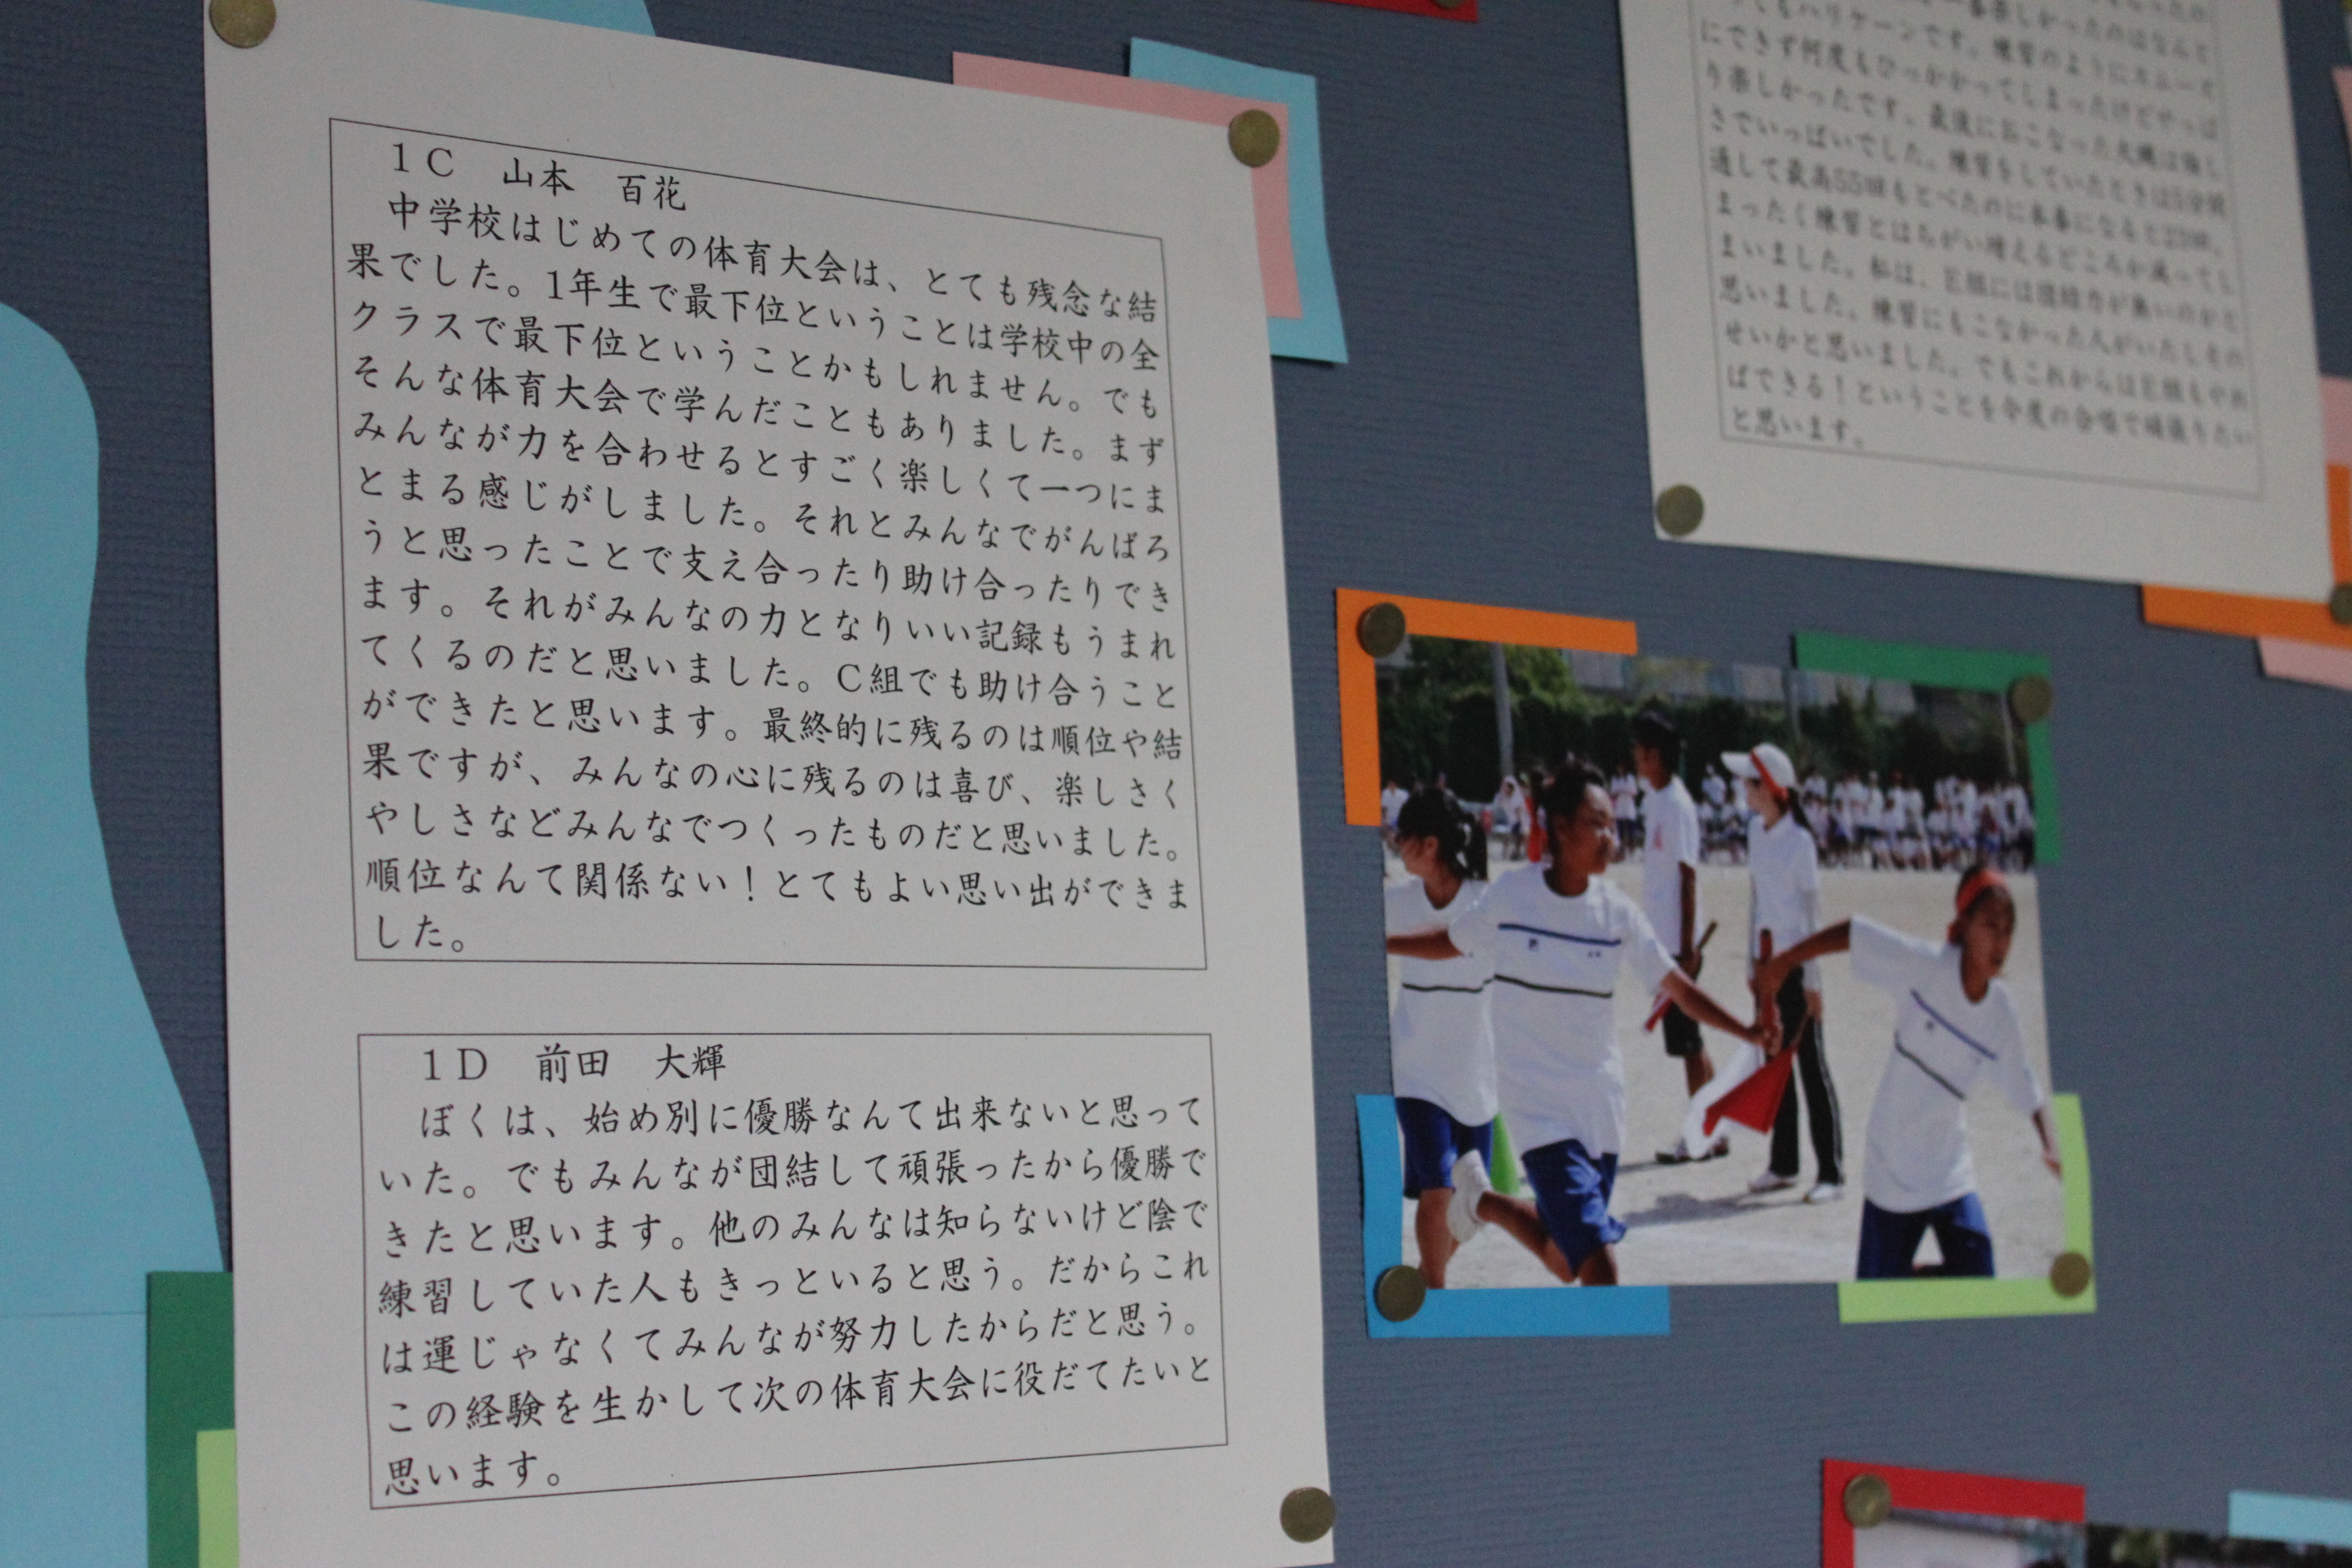 1C 山本 百花
中学校はじめての体育大会は、とても残念な結
果でした。1年生で最下位ということは学校中の全
クラスで最下位ということかもしれません。でも
そんな体育大会で学んだこともありました。まず
みんなが力を合わせるとすごく楽しくて一つにま
とまる感じがしました。それとみんなでがんばろ
うと思ったことで支え合ったり助け合ったりでき
ます。それがみんなの力となりいい記録もうまれ
てくるのだと思いました。C組でも助け合うこと
ができたと思います。最終的に残るのは順位や結
果ですが、みんなの心に残るのは喜び、楽しさく
やしさなどみんなでつくったものだと思いました。
順位なんて関係ない！とてもよい思い出ができま
した。
1D 前田 大輝
ぼくは、始め別に優勝なんて出来ないと思って
いた。でもみんなが団結して頑張ったから優勝で
きたと思います。他のみんなは知らないけど陰で
練習していた人もきっといると思う。だからこれ
は運じゃなくてみんなが努力したからだと思う。
この経験を生かして次の体育大会に役だてたいと
思います。
てもハリケーンです。練習のようにスムーズ
にできず何度もひっかかってしまったけどやっぱ
り楽しかったです。最後におこなった大縄は悔し
さでいっぱいでした。練習をしていたときは5分間
通して最高55回もとべたのに本番になると
まったく練習とはちがい増えるどころか減ってし
まいました。私は、E組には団結力が無いのかと
思いました。練習にもこなかった人がいたしその
せいかと思いました。でもこれからはE組もやれ
ばできる！ということを今度の合唱で頑張りたい
と思います。